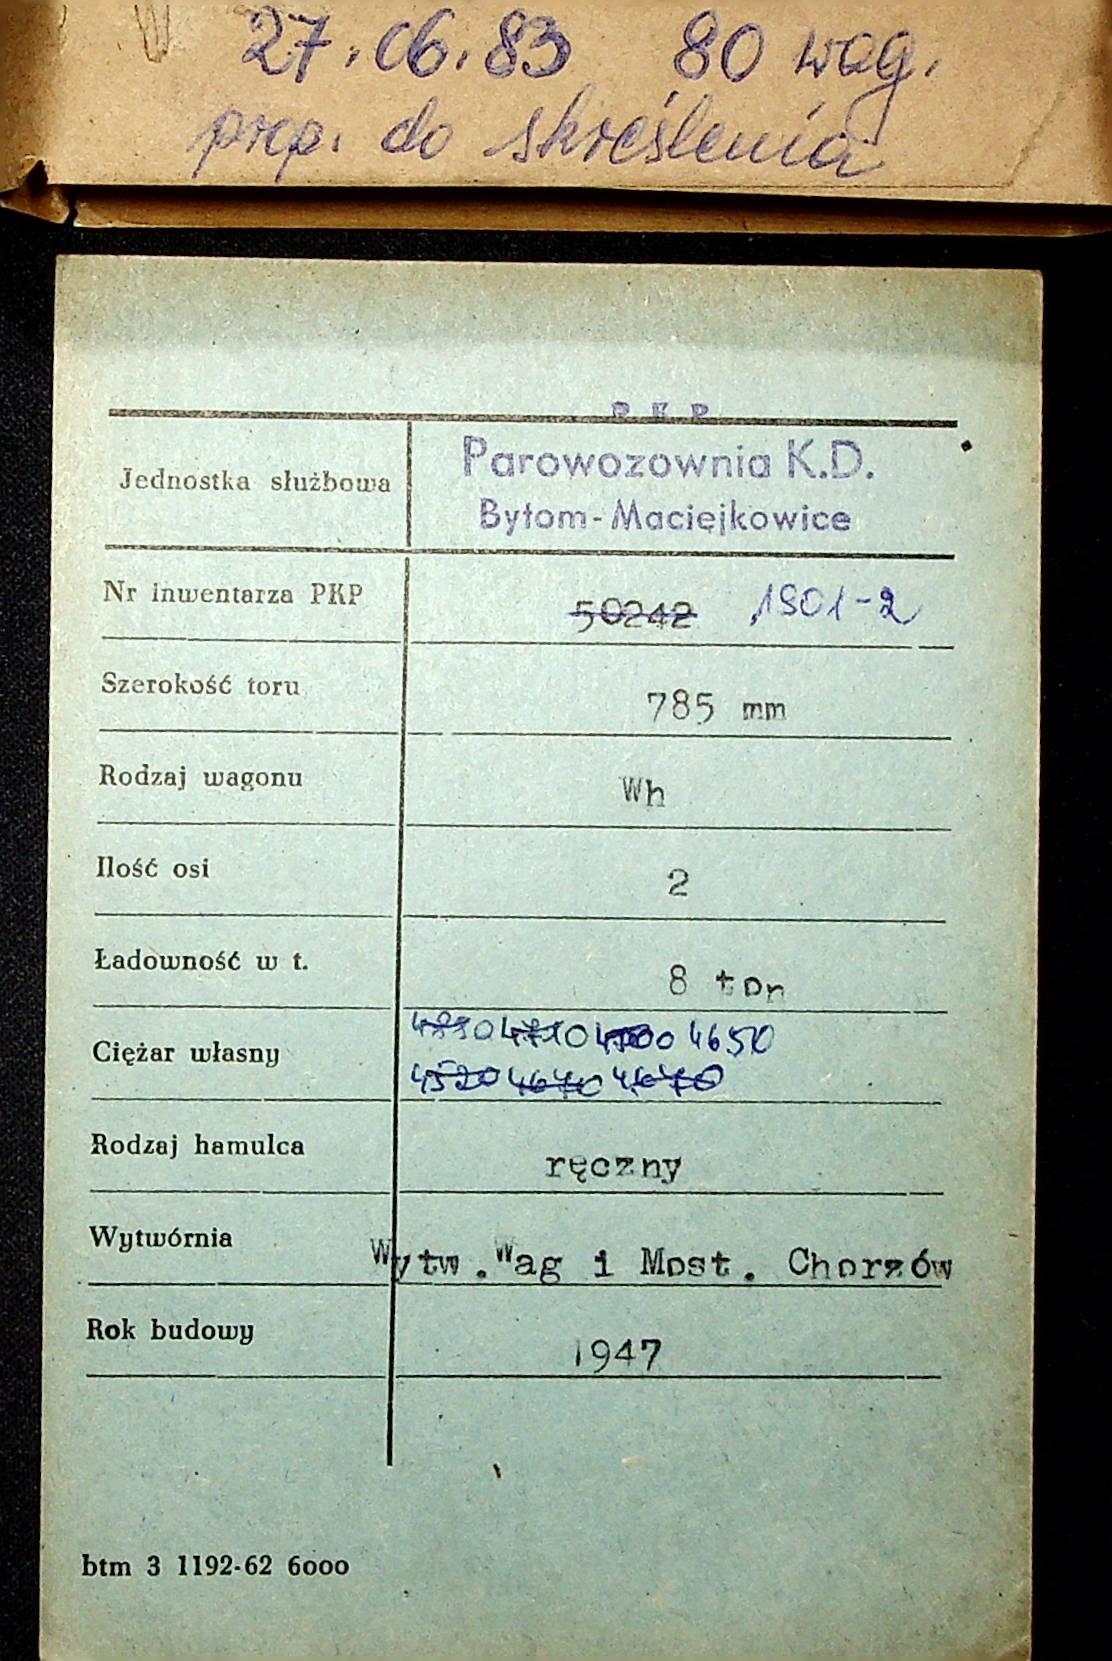 27.06.83 80 wag.
prop. do skreślenia
PKP
Parowozownia K.D.
Jednostka służbowa
Bytom-Maciejkowice
Nr inwentarza PKP 50242 1901-2
Szerokość toru 785 mm
Rodzaj wagonu Wh
Ilość osi 2
Ładowność w t. 8 ton
4710 4650
Ciężar własny
4520 4640 4670
Rodzaj hamulca ręczny
Wytwórnia Wytw. Wag i Most. Chorzów
Rok budowy 1947
btm 3 1192-62 6000